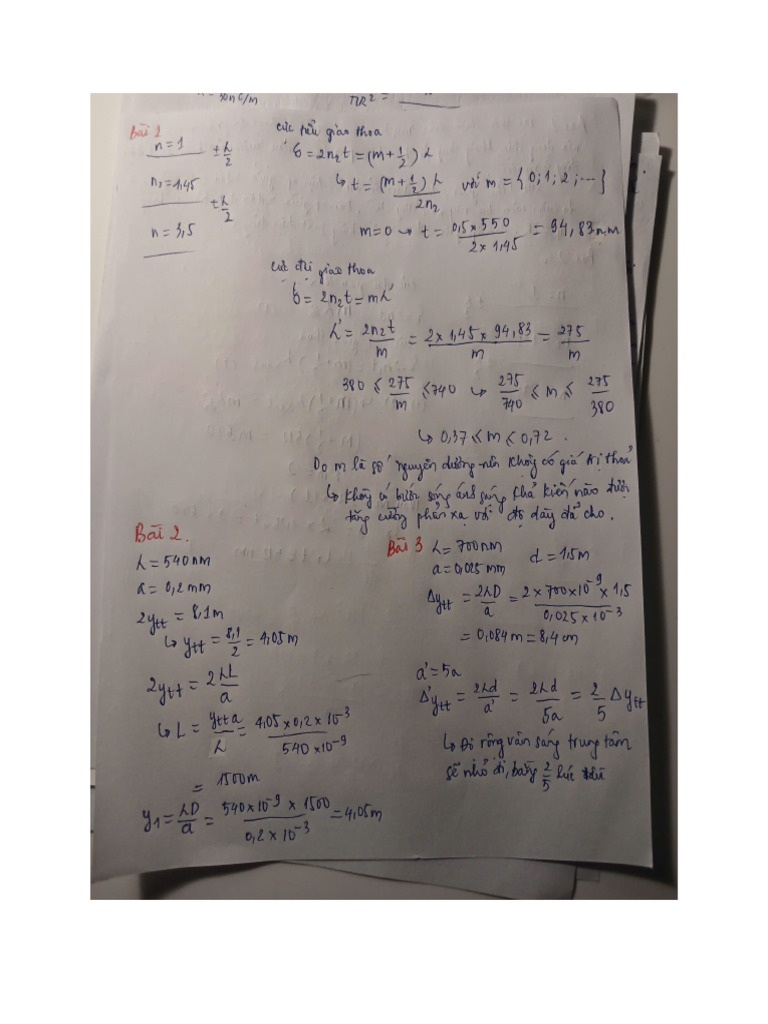 = 30nC/m
πR² =
Bài 1
n=1
± λ/2
n₂=1,45
± λ/2
n=3,5
Cực tiểu giao thoa
δ = 2n₂t = (m+1/2) λ
↳ t = (m+1/2) λ / 2n₂ với m = {0;1;2;...}
m=0 → t = 0,5 × 550 / 2 × 1,45 = 94,83 nm
Cực đại giao thoa
δ = 2n₂t = mλ'
λ' = 2n₂t / m = 2 × 1,45 × 94,83 / m = 275 / m
380 ≤ 275/m ≤ 740 ↪ 275/740 ≤ m ≤ 275/380
↳ 0,37 ≤ m ≤ 0,72 .
Do m là số nguyên dương nên không có giá trị thoả
↳ Không có bước sóng ánh sáng khả kiến nào được
tăng cường phản xạ với độ dày đã cho.
Bài 2.
λ = 540 nm
a = 0,2 mm
2ytt = 8,1m
↳ ytt = 8,1/2 = 4,05m
2ytt = 2λL/a
↳ L = ytt a / λ = 4,05 × 0,2 × 10⁻³ / 540 × 10⁻⁹
= 1500m
y₁ = λD/a = 540 × 10⁻⁹ × 1500 / 0,2 × 10⁻³ = 4,05m
Bài 3
λ = 700nm
d = 1,5m
a = 0,025 mm
Δytt = 2λD/a = 2 × 700 × 10⁻⁹ × 1,5 / 0,025 × 10⁻³
= 0,084m = 8,4 cm
a' = 5a
Δ'ytt = 2λd/a' = 2λd/5a = 2/5 Δytt
↳ Độ rộng vân sáng trung tâm
sẽ nhỏ đi, bằng 2/5 lúc